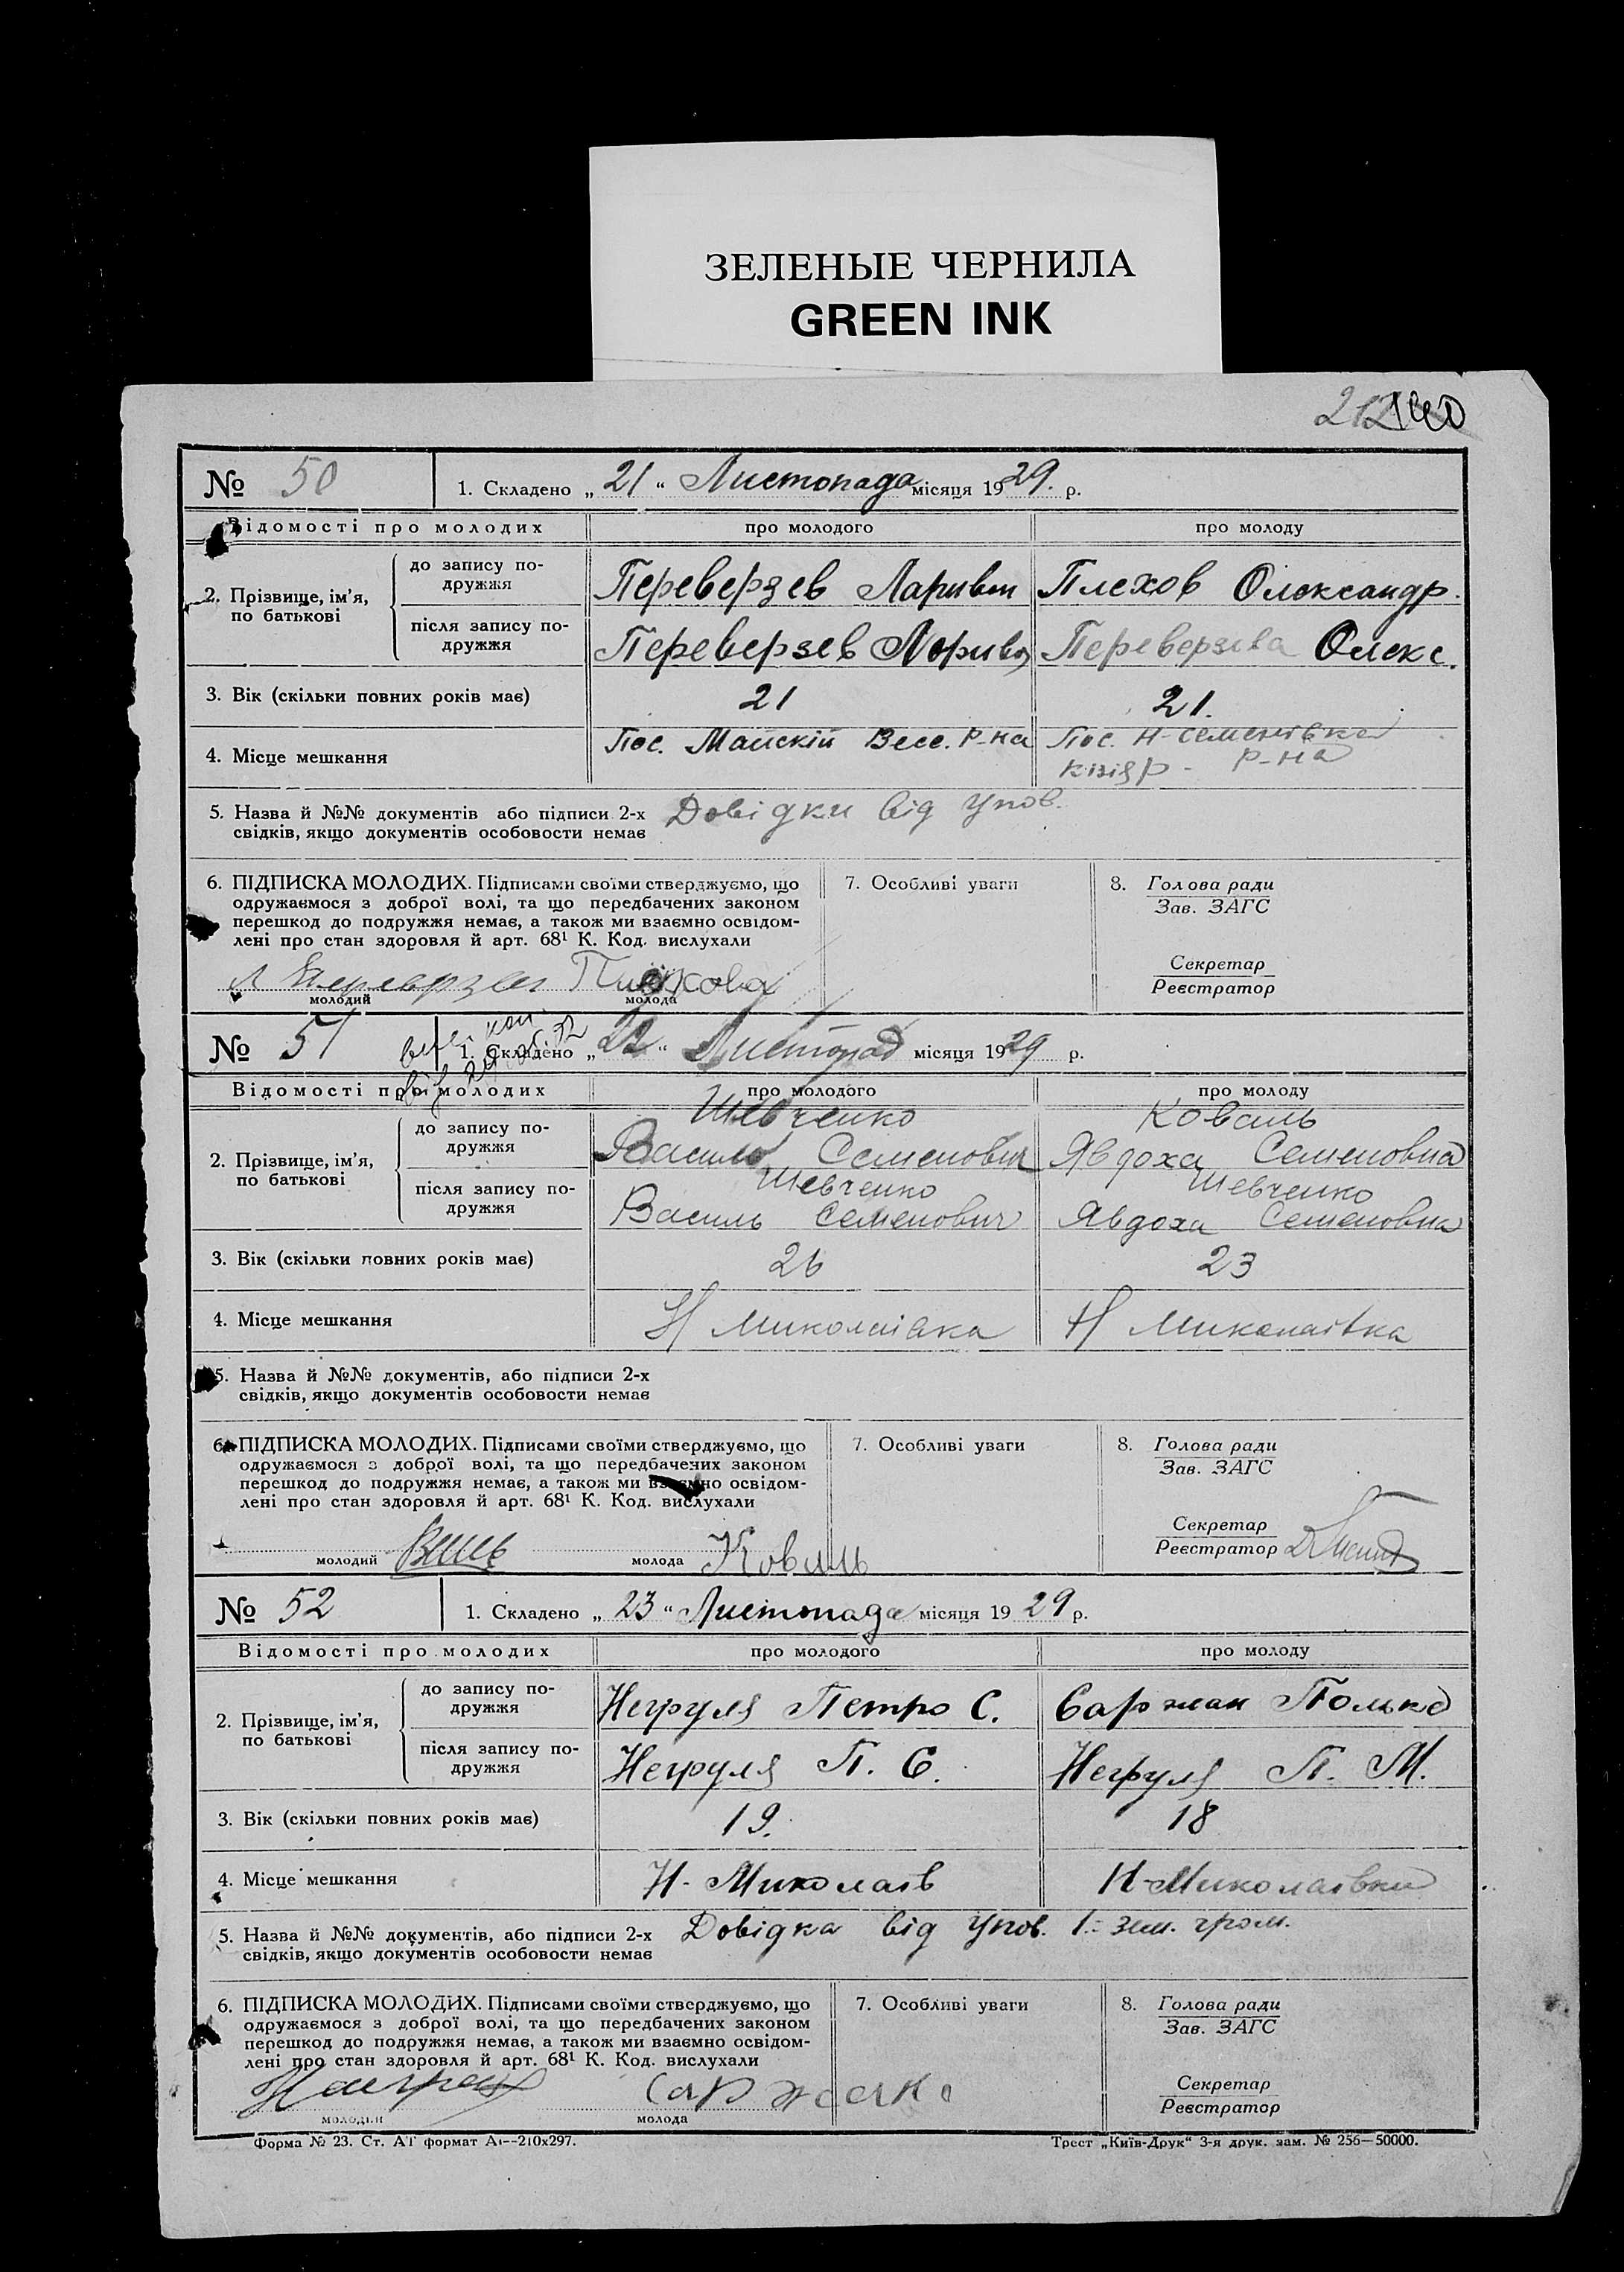 ЗЕЛЕНЫЕ ЧЕРНИЛА
GREEN INK
212 140
№ 50 1. Складено „ 21 “ Листопада місяця 1929. р.
Відомості про молодих про молодого про молоду
2. Прізвище, ім'я, по батькові
до запису по-
дружжя
Переверзев Ларивон Плехов Олександр.
після запису по-
дружжя
Переверзев Ларивон Переверзева Олекс.
3. Вік (скільки повних років має) 21 21.
4. Місце мешкання Пос. Майскій Весе. р-на Пос. Н-Семенівка
р-на
5. Назва й №№ документів або підписи 2-х Довідки від Упов.
свідків, якщо документів особовости немає
6. ПІДПИСКА МОЛОДИХ. Підписами своїми стверджуємо, що
одружаємося з доброї волі, та що передбачених законом
перешкод до подружжя немає, а також ми взаємно освідом-
лені про стан здоровля й арт. 68¹ К. Код. вислухали
Л Переверзев Плехова
молодий молода
7. Особливі уваги
8. Голова ради
Зав. ЗАГС
Секретар
Реєстратор
№ 51 1. Складено „ 22 “ Листопад місяця 1929 р.
Відомості про молодих про молодого про молоду
2. Прізвище, ім'я, по батькові
до запису по-
дружжя
Шевченко Коваль
Василь Семенович Явдоха Семеновна
після запису по-
дружжя
Шевченко Шевченко
Василь Семенович Явдоха Семеновна
3. Вік (скільки повних років має) 26 23
4. Місце мешкання Н Миколаівка Н Миколаівка
5. Назва й №№ документів, або підписи 2-х
свідків, якщо документів особовости немає
6. ПІДПИСКА МОЛОДИХ. Підписами своїми стверджуємо, що
одружаємося з доброї волі, та що передбачених законом
перешкод до подружжя немає, а також ми взаємно освідом-
лені про стан здоровля й арт. 68¹ К. Код. вислухали
молодий молода Коваль
7. Особливі уваги
8. Голова ради
Зав. ЗАГС
Секретар
Реєстратор
№ 52 1. Складено „ 23 “ Листопада місяця 1929 р.
Відомості про молодих про молодого про молоду
2. Прізвище, ім'я, по батькові
до запису по-
дружжя
Негруля Петро С. Саржан Полька
після запису по-
дружжя
Негруля П. С. Негруля П. М.
3. Вік (скільки повних років має) 19. 18
4. Місце мешкання Н-Миколаів Н-Миколаівка
5. Назва й №№ документів, або підписи 2-х Довідка від Упов. 1-ї зем. гром.
свідків, якщо документів особовости немає
6. ПІДПИСКА МОЛОДИХ. Підписами своїми стверджуємо, що
одружаємося з доброї волі, та що передбачених законом
перешкод до подружжя немає, а також ми взаємно освідом-
лені про стан здоровля й арт. 68¹ К. Код. вислухали
молодий молода
7. Особливі уваги
8. Голова ради
Зав. ЗАГС
Секретар
Реєстратор
Форма № 23. Ст. АТ формат А4--210х297. Трест „Київ-Друк“ 3-я друк. зам. № 256—50000.